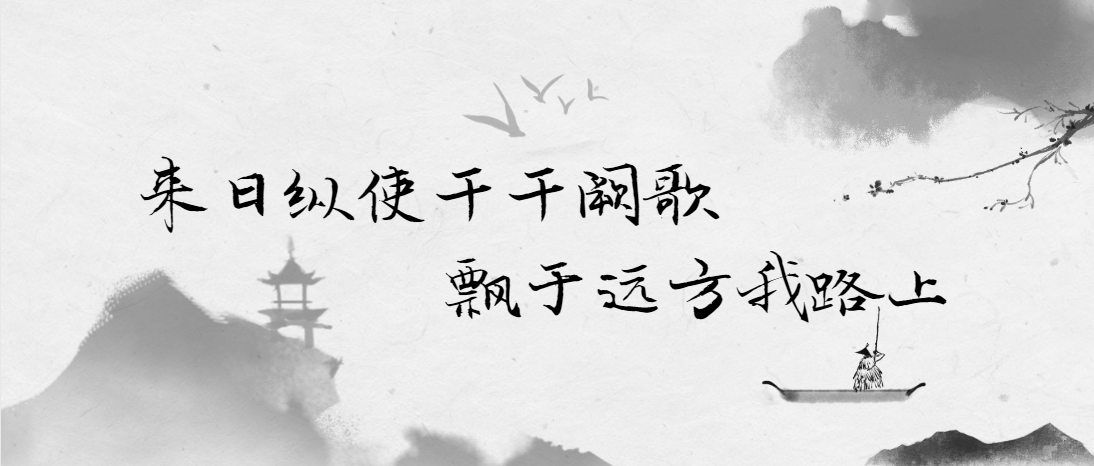 来日纵使千千阙歌
飘于远方我路上